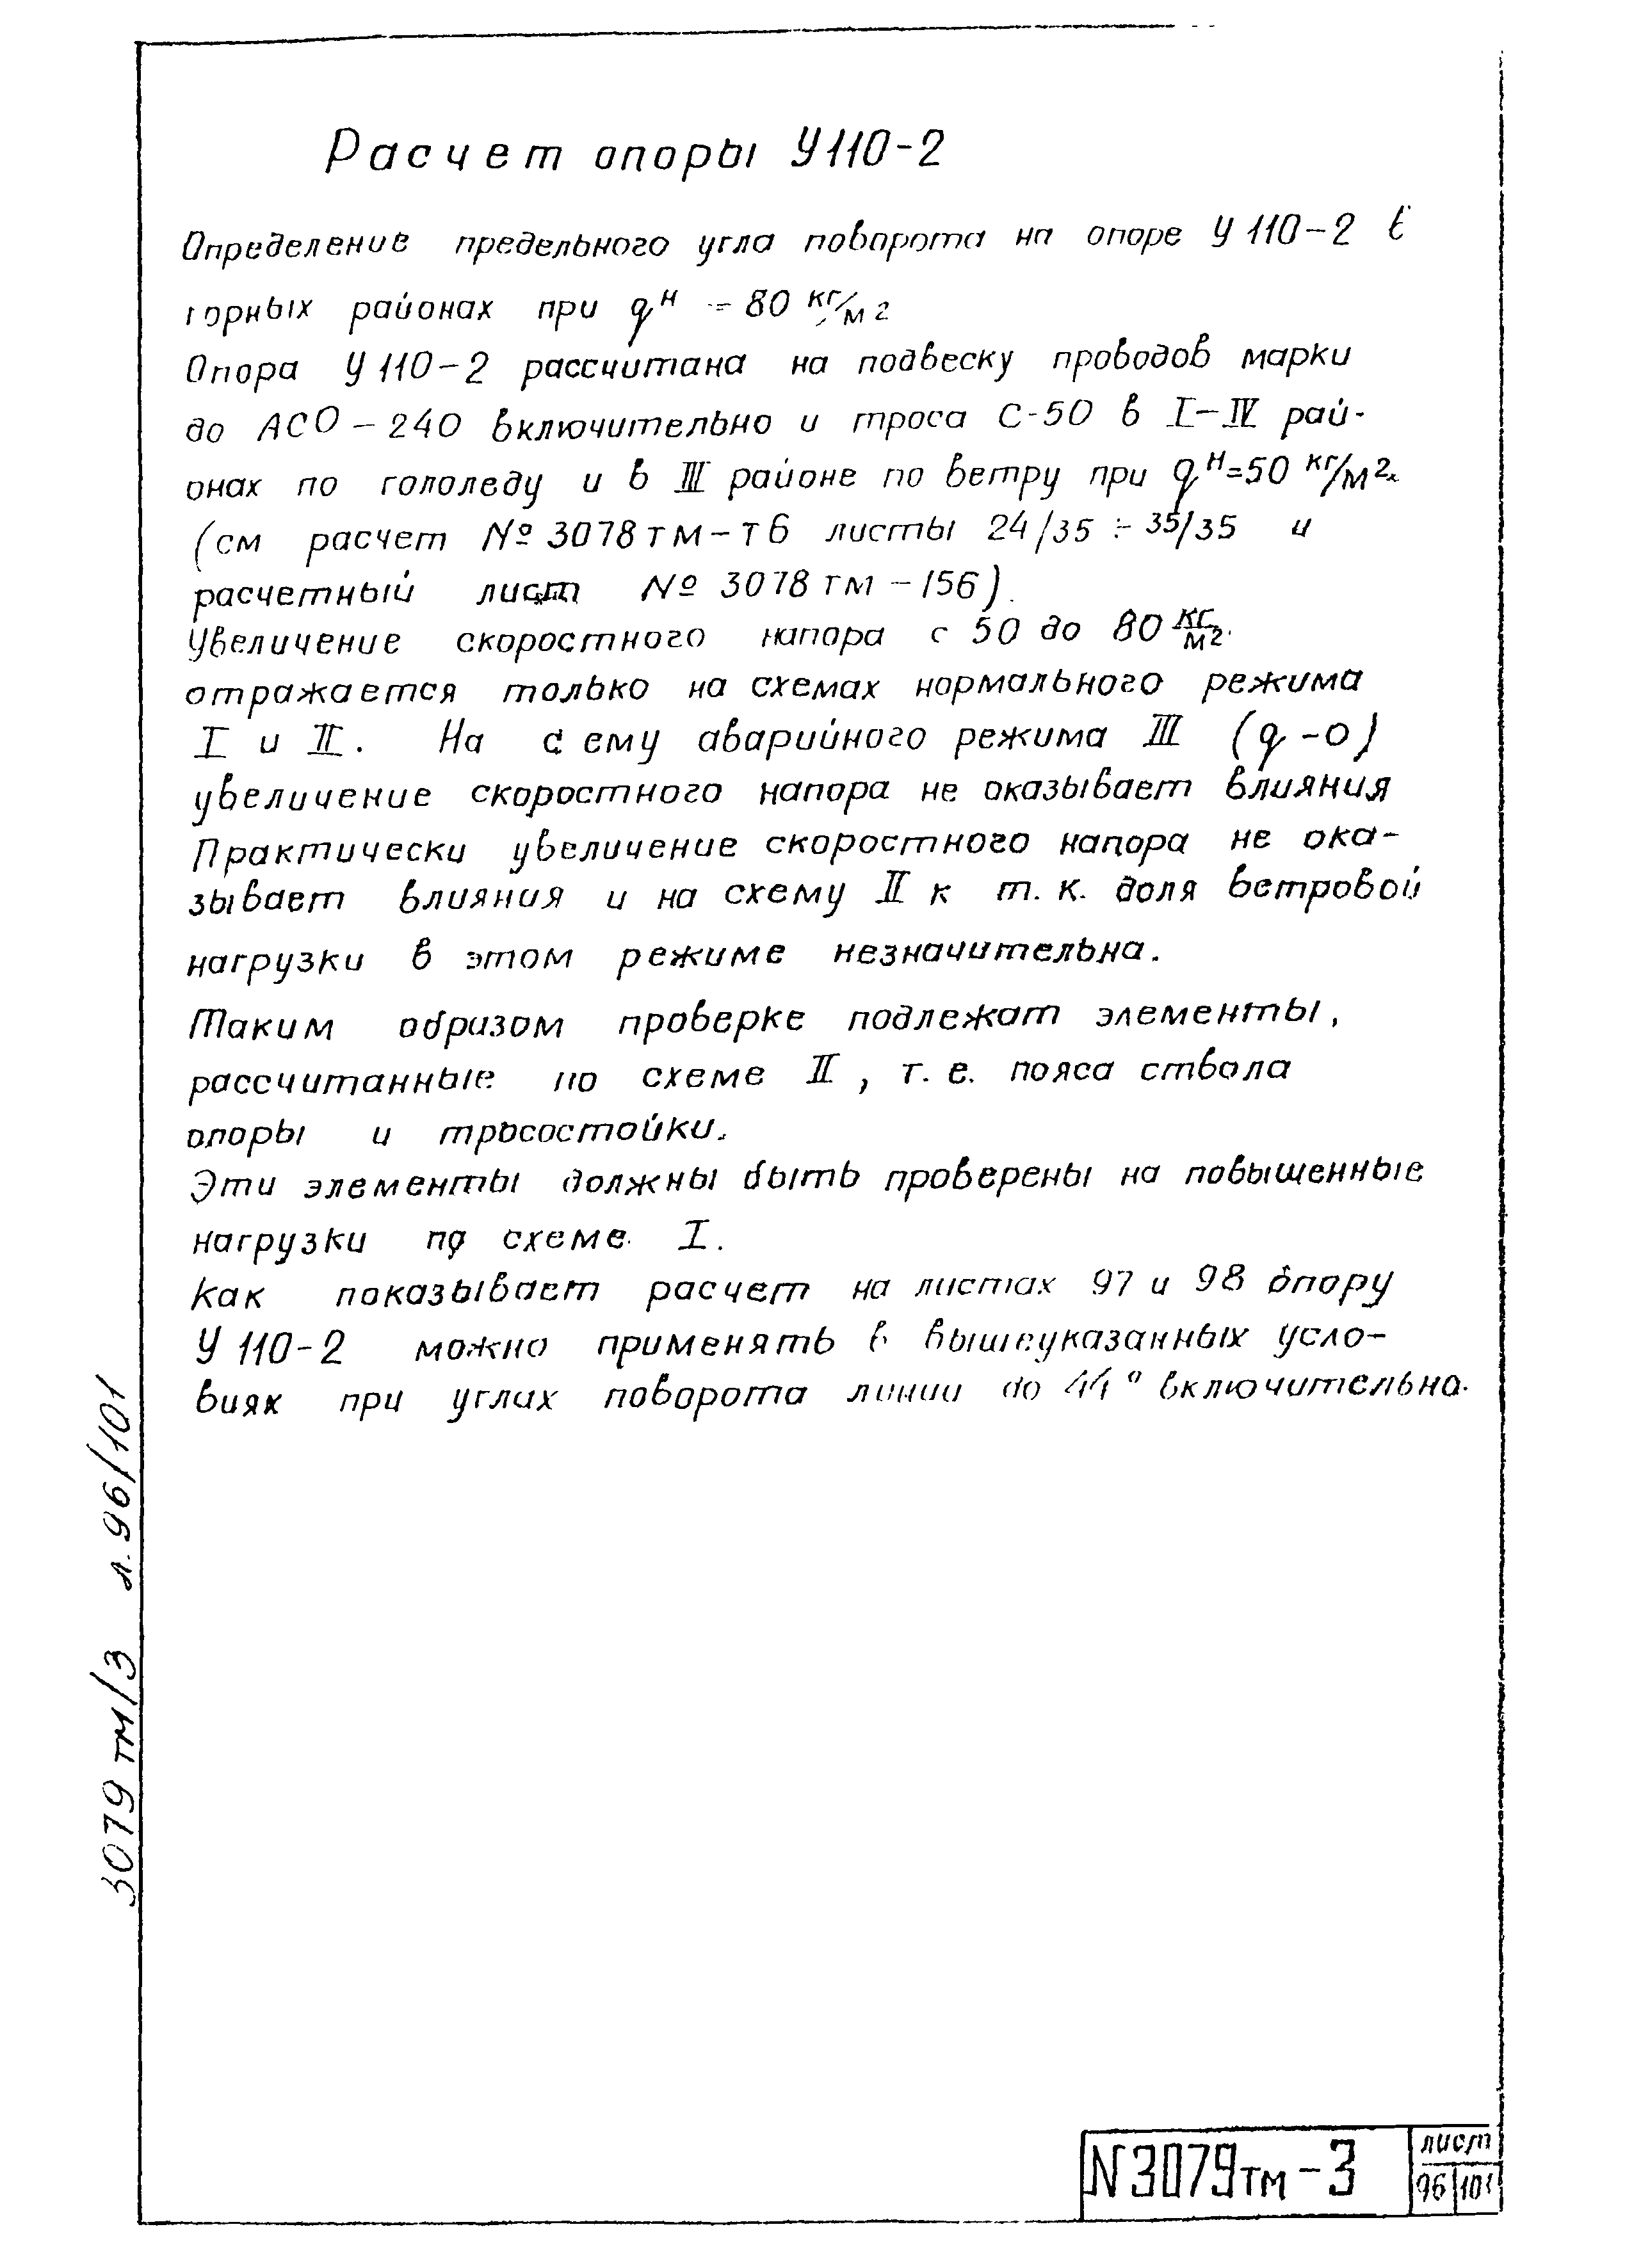 Расчет опоры У110-2
Определение предельного угла поворота на опоре У 110-2 в
горных районах при qн = 80 кг/м2
Опора У 110-2 рассчитана на подвеску проводов марки
до АСО-240 включительно и троса С-50 в I-IV рай-
онах по гололеду и в III районе по ветру при qн=50 кг/м2.
(см расчет № 3078тм-т6 листы 24/35 ÷ 35/35 и
расчетный лист № 3078тм-156).
Увеличение скоростного напора с 50 до 80 кг/м2.
отражается только на схемах нормального режима
I и II. На схему аварийного режима III (q-0)
увеличение скоростного напора не оказывает влияния
Практически увеличение скоростного напора не ока-
зывает влияния и на схему II к т.к. доля ветровой
нагрузки в этом режиме незначительна.
Таким образом проверке подлежат элементы,
рассчитанные по схеме II, т.е. пояса ствола
опоры и тросостойки.
Эти элементы должны быть проверены на повышенные
нагрузки по схеме I.
Как показывает расчет на листах 97 и 98 опору
У 110-2 можно применять в вышеуказанных усло-
виях при углах поворота линии до 44° включительно.
3079тм/3 л.96/101
N3079тм-3
лист
96 101